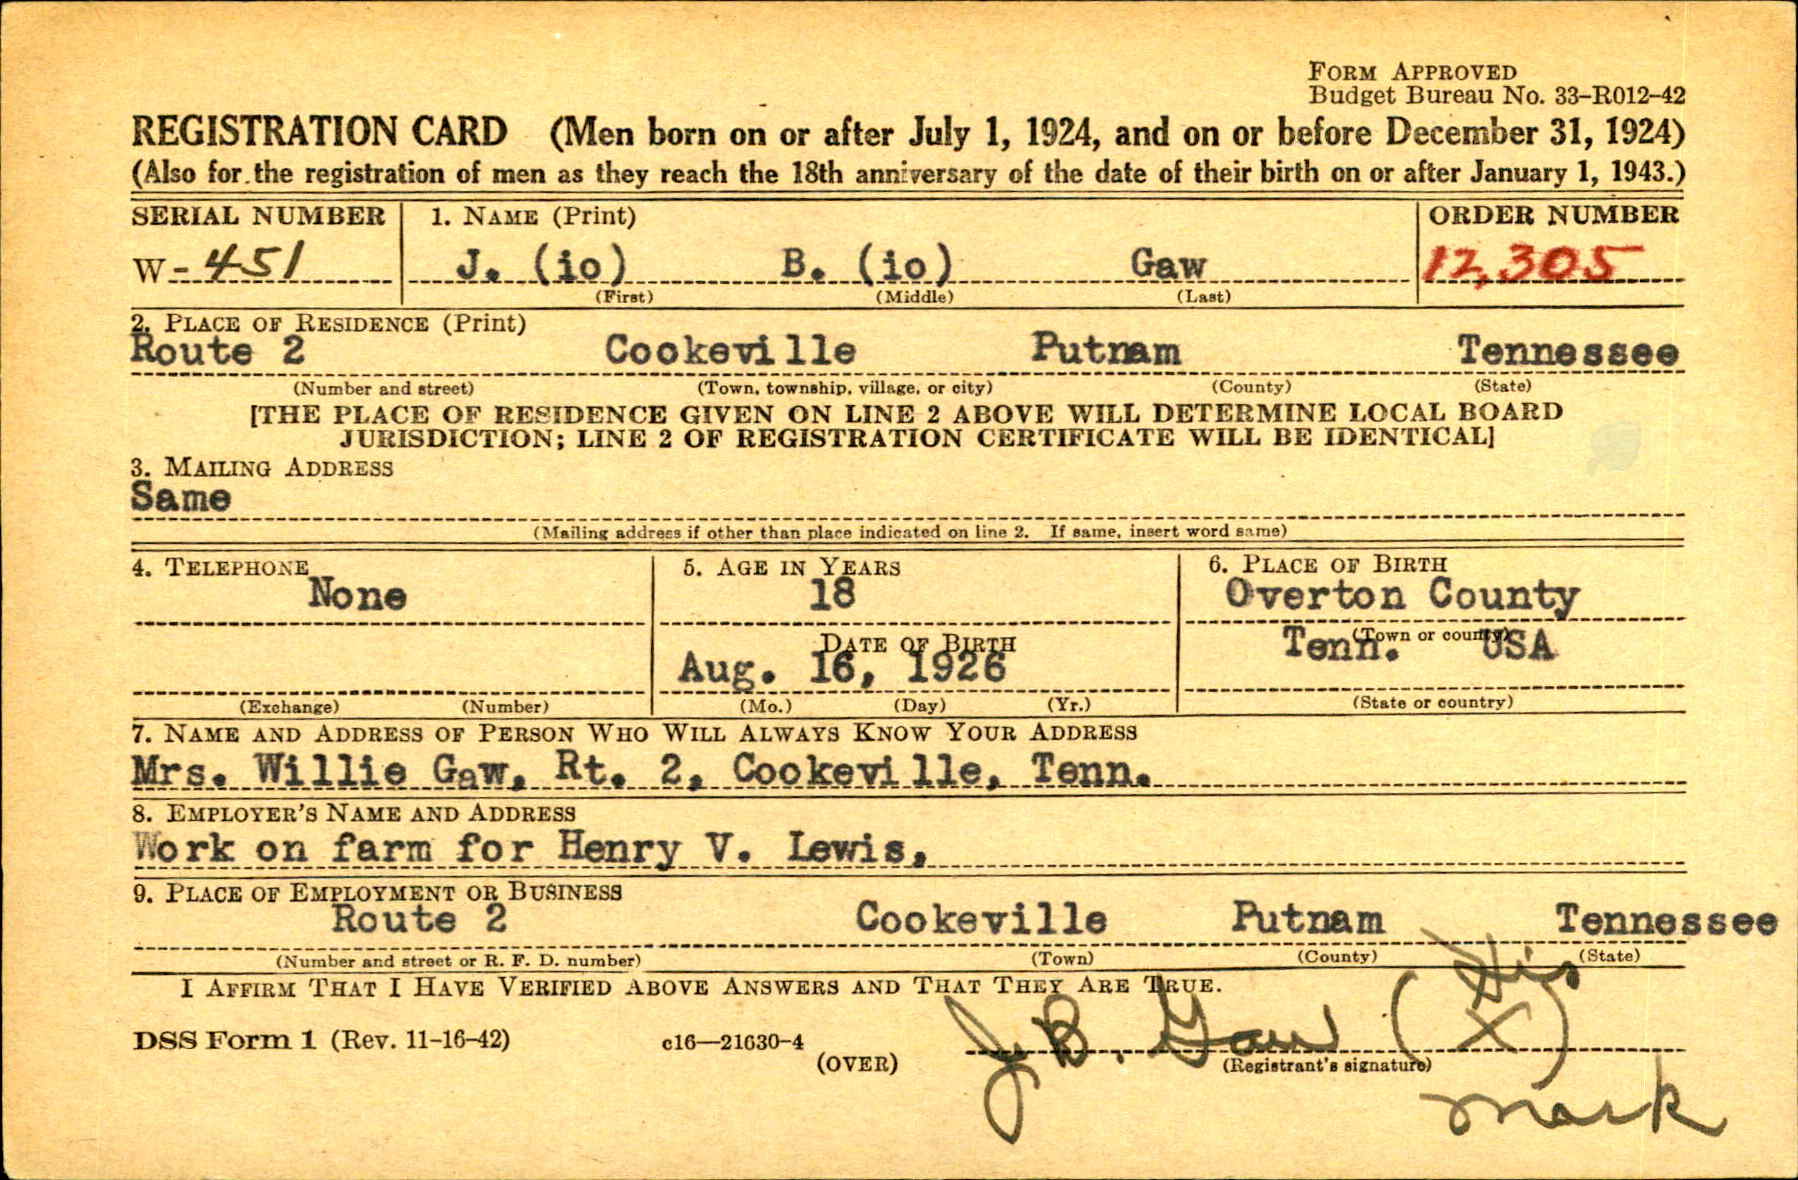 FORM APPROVED
Budget Bureau No. 33-R012-42
REGISTRATION CARD (Men born on or after July 1, 1924, and on or before December 31, 1924)
(Also for the registration of men as they reach the 18th anniversary of the date of their birth on or after January 1, 1943.)
SERIAL NUMBER 1. NAME (Print) ORDER NUMBER
W-451 J. (io) B. (io) Gaw 12,305
(First) (Middle) (Last)
2. PLACE OF RESIDENCE (Print)
Route 2 Cookeville Putnam Tennessee
(Number and street) (Town, township, village, or city) (County) (State)
[THE PLACE OF RESIDENCE GIVEN ON LINE 2 ABOVE WILL DETERMINE LOCAL BOARD
JURISDICTION; LINE 2 OF REGISTRATION CERTIFICATE WILL BE IDENTICAL]
3. MAILING ADDRESS
Same
(Mailing address if other than place indicated on line 2. If same, insert word same)
4. TELEPHONE 5. AGE IN YEARS 6. PLACE OF BIRTH
None 18 Overton County
DATE OF BIRTH (Town or county)
Aug. 16, 1926 Tenn. USA
(Exchange) (Number) (Mo.) (Day) (Yr.) (State or country)
7. NAME AND ADDRESS OF PERSON WHO WILL ALWAYS KNOW YOUR ADDRESS
Mrs. Willie Gaw, Rt. 2, Cookeville, Tenn.
8. EMPLOYER'S NAME AND ADDRESS
Work on farm for Henry V. Lewis,
9. PLACE OF EMPLOYMENT OR BUSINESS
Route 2 Cookeville Putnam Tennessee
(Number and street or R. F. D. number) (Town) (County) (State)
I AFFIRM THAT I HAVE VERIFIED ABOVE ANSWERS AND THAT THEY ARE TRUE.
His
DSS Form 1 (Rev. 11-16-42) c16—21630-4 J. B. Gaw (X)
(OVER) (Registrant's signature)
mark